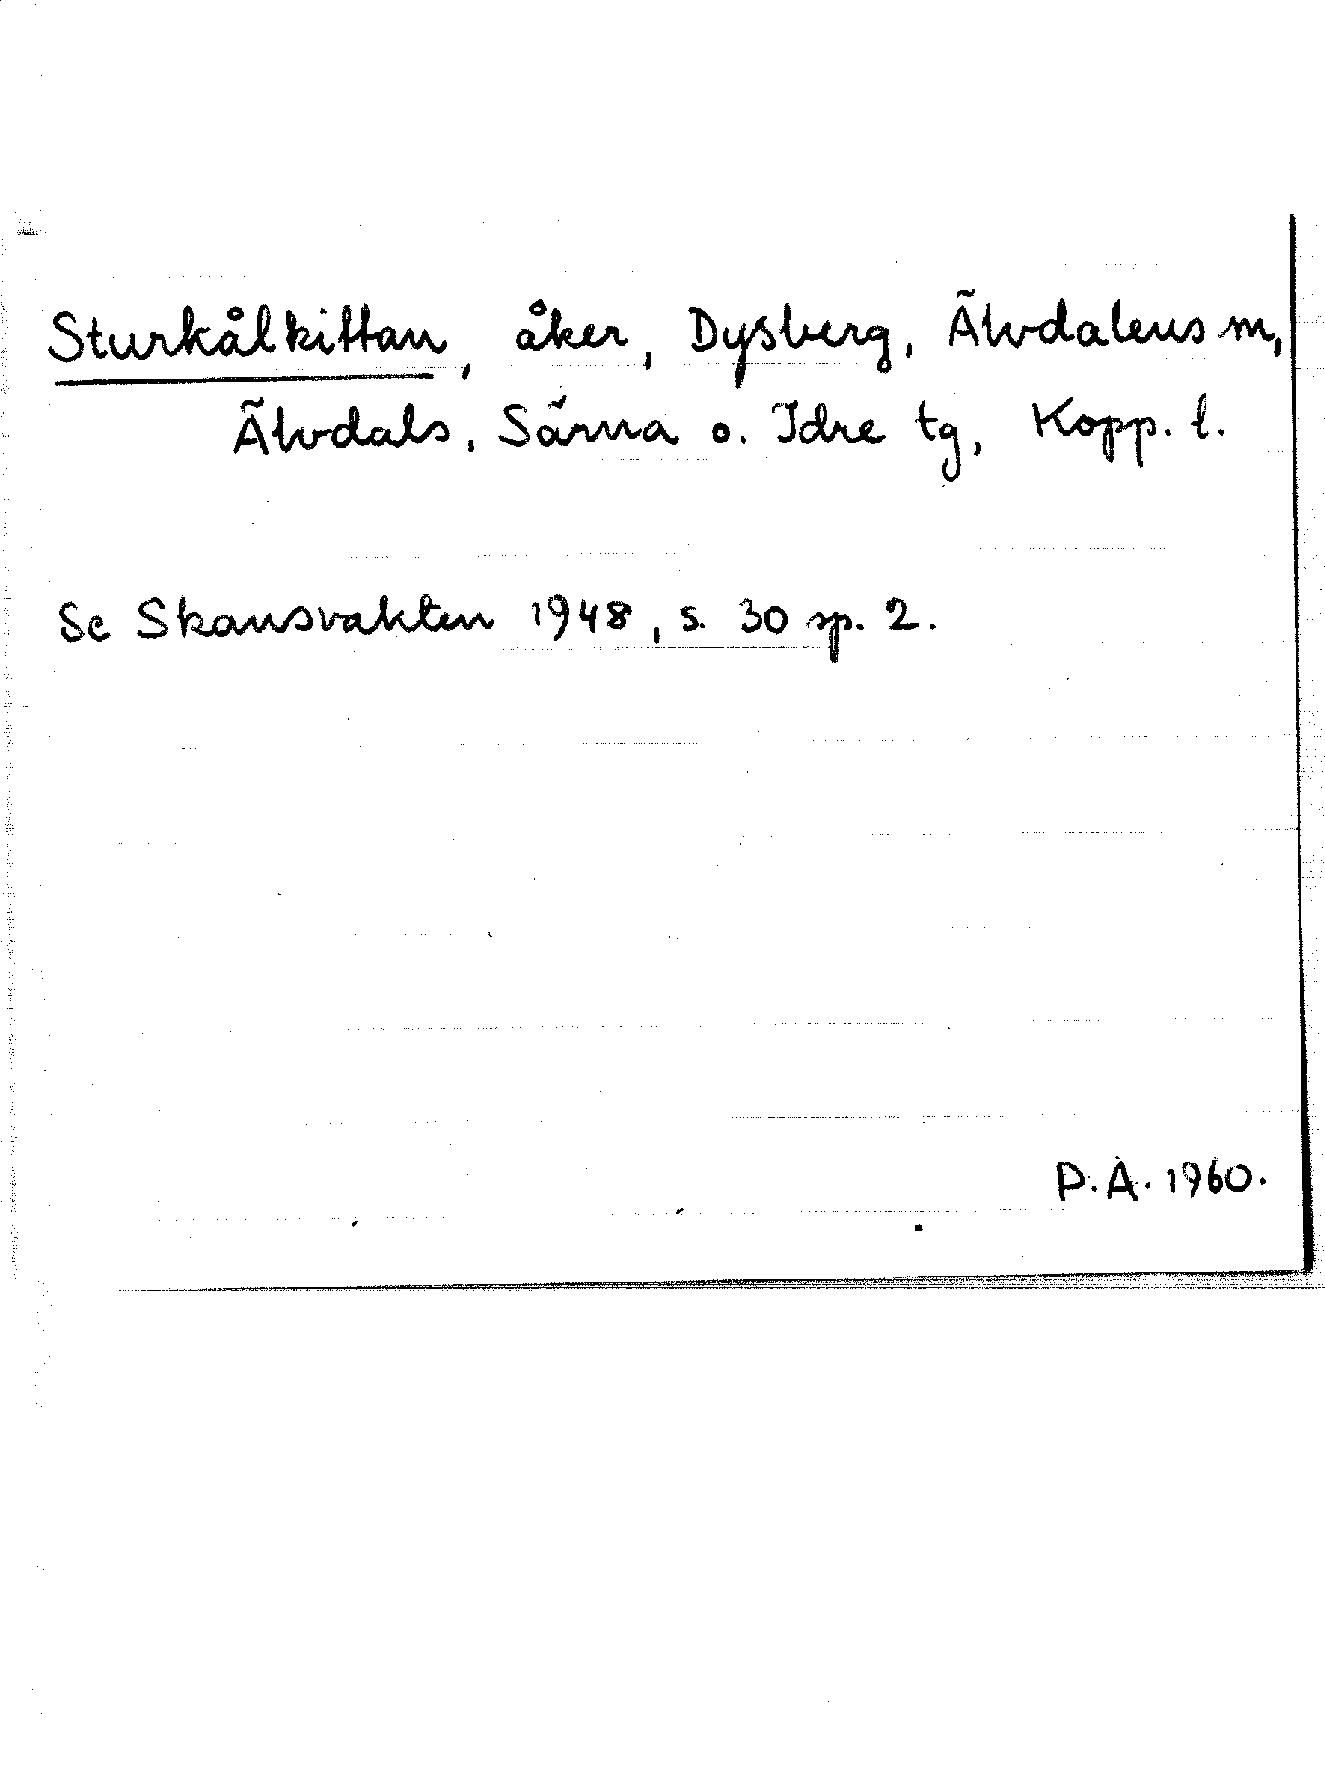 Sturkålkittan, åker, Dysberg, Älvdalens m,
Älvdals, Särna o. Idre tg, Kopp. l.
Se Skansvakten 1948, s. 30 sp. 2.
P.A. 1960.